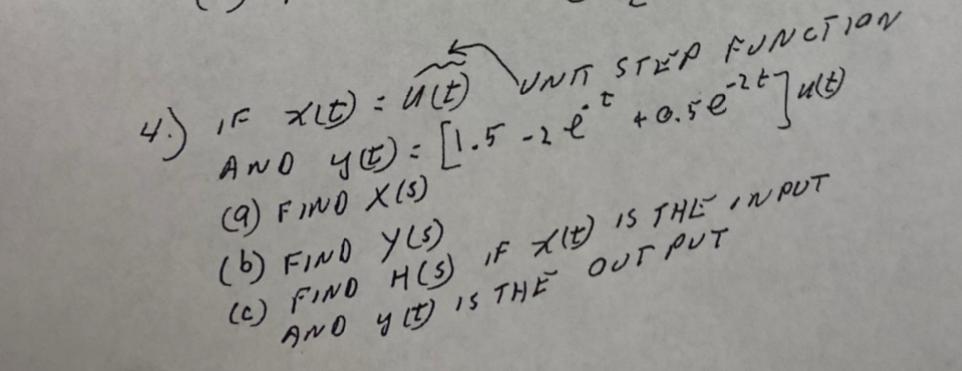 4.) IF x(t) = u(t) UNIT STEP FUNCTION
AND y(t) = [1.5 - 2e^-t + 0.5e^-2t] u(t)
(a) FIND X(s)
(b) FIND Y(s)
(c) FIND H(s) IF x(t) IS THE INPUT
AND y(t) IS THE OUTPUT